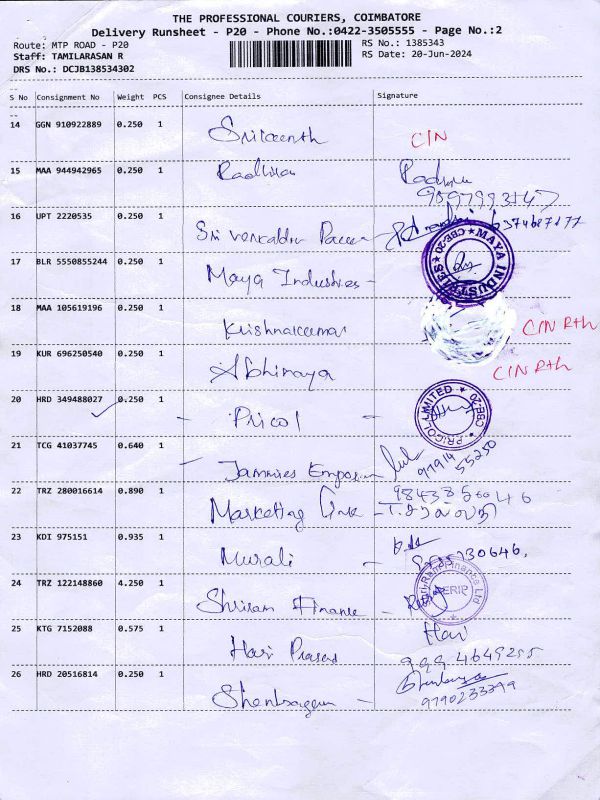 THE PROFESSIONAL COURIERS, COIMBATORE
Delivery Runsheet - P20 - Phone No.:0422-3505555 - Page No.:2
Route: MTP ROAD - P20
RS No.: 1385343
Staff: TAMILARASAN R
RS Date: 20-Jun-2024
DRS No.: DCJB138534302
S No Consignment No Weight PCS Consignee Details Signature
14 GGN 910922889 0.250 1
CIN
15 MAA 944942965 0.250 1 Radhika
16 UPT 2220535 0.250 1
Sri
17 BLR 5550855244 0.250 1
Maya Industries -
MAYA INDUSTRIES
CBE-20
18 MAA 105619196 0.250 1
Krishnakumar
CIN Rth
19 KUR 696250540 0.250 1
Abhinaya
CIN Rth
20 HRD 349488027 0.250 1
- Pricol -
PRICOL LIMITED
CBE-20
21 TCG 41037745 0.640 1
97914
55250
22 TRZ 280016614 0.890 1
Marketing Link -
23 KDI 975151 0.935 1
Murali
24 TRZ 122148860 4.250 1
Shriram Finance -
25 KTG 7152088 0.575 1 Hari
Hari Prasad
999 4649255
26 HRD 20516814 0.250 1
9790233399